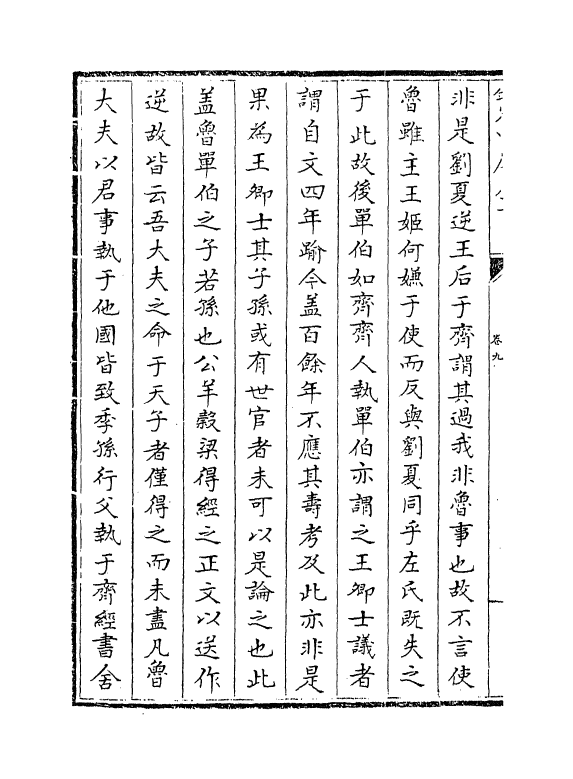 卷九
非是劉夏逆王后于齊謂其過我非魯事也故不言使
魯雖主王姬何嫌于使而反與劉夏同乎左氏既失之
于此故後單伯如齊齊人執單伯亦謂之王卿士議者
謂自文四年踰今盖百餘年不應其壽考及此亦非是
果為王卿士其子孫或有世官者未可以是論之也此
盖魯單伯之子若孫也公羊穀梁得經之正文以送作
逆故皆云吾大夫之命于天子者僅得之而未盡凡魯
大夫以君事執于他國皆致季孫行父執于齊經書舍